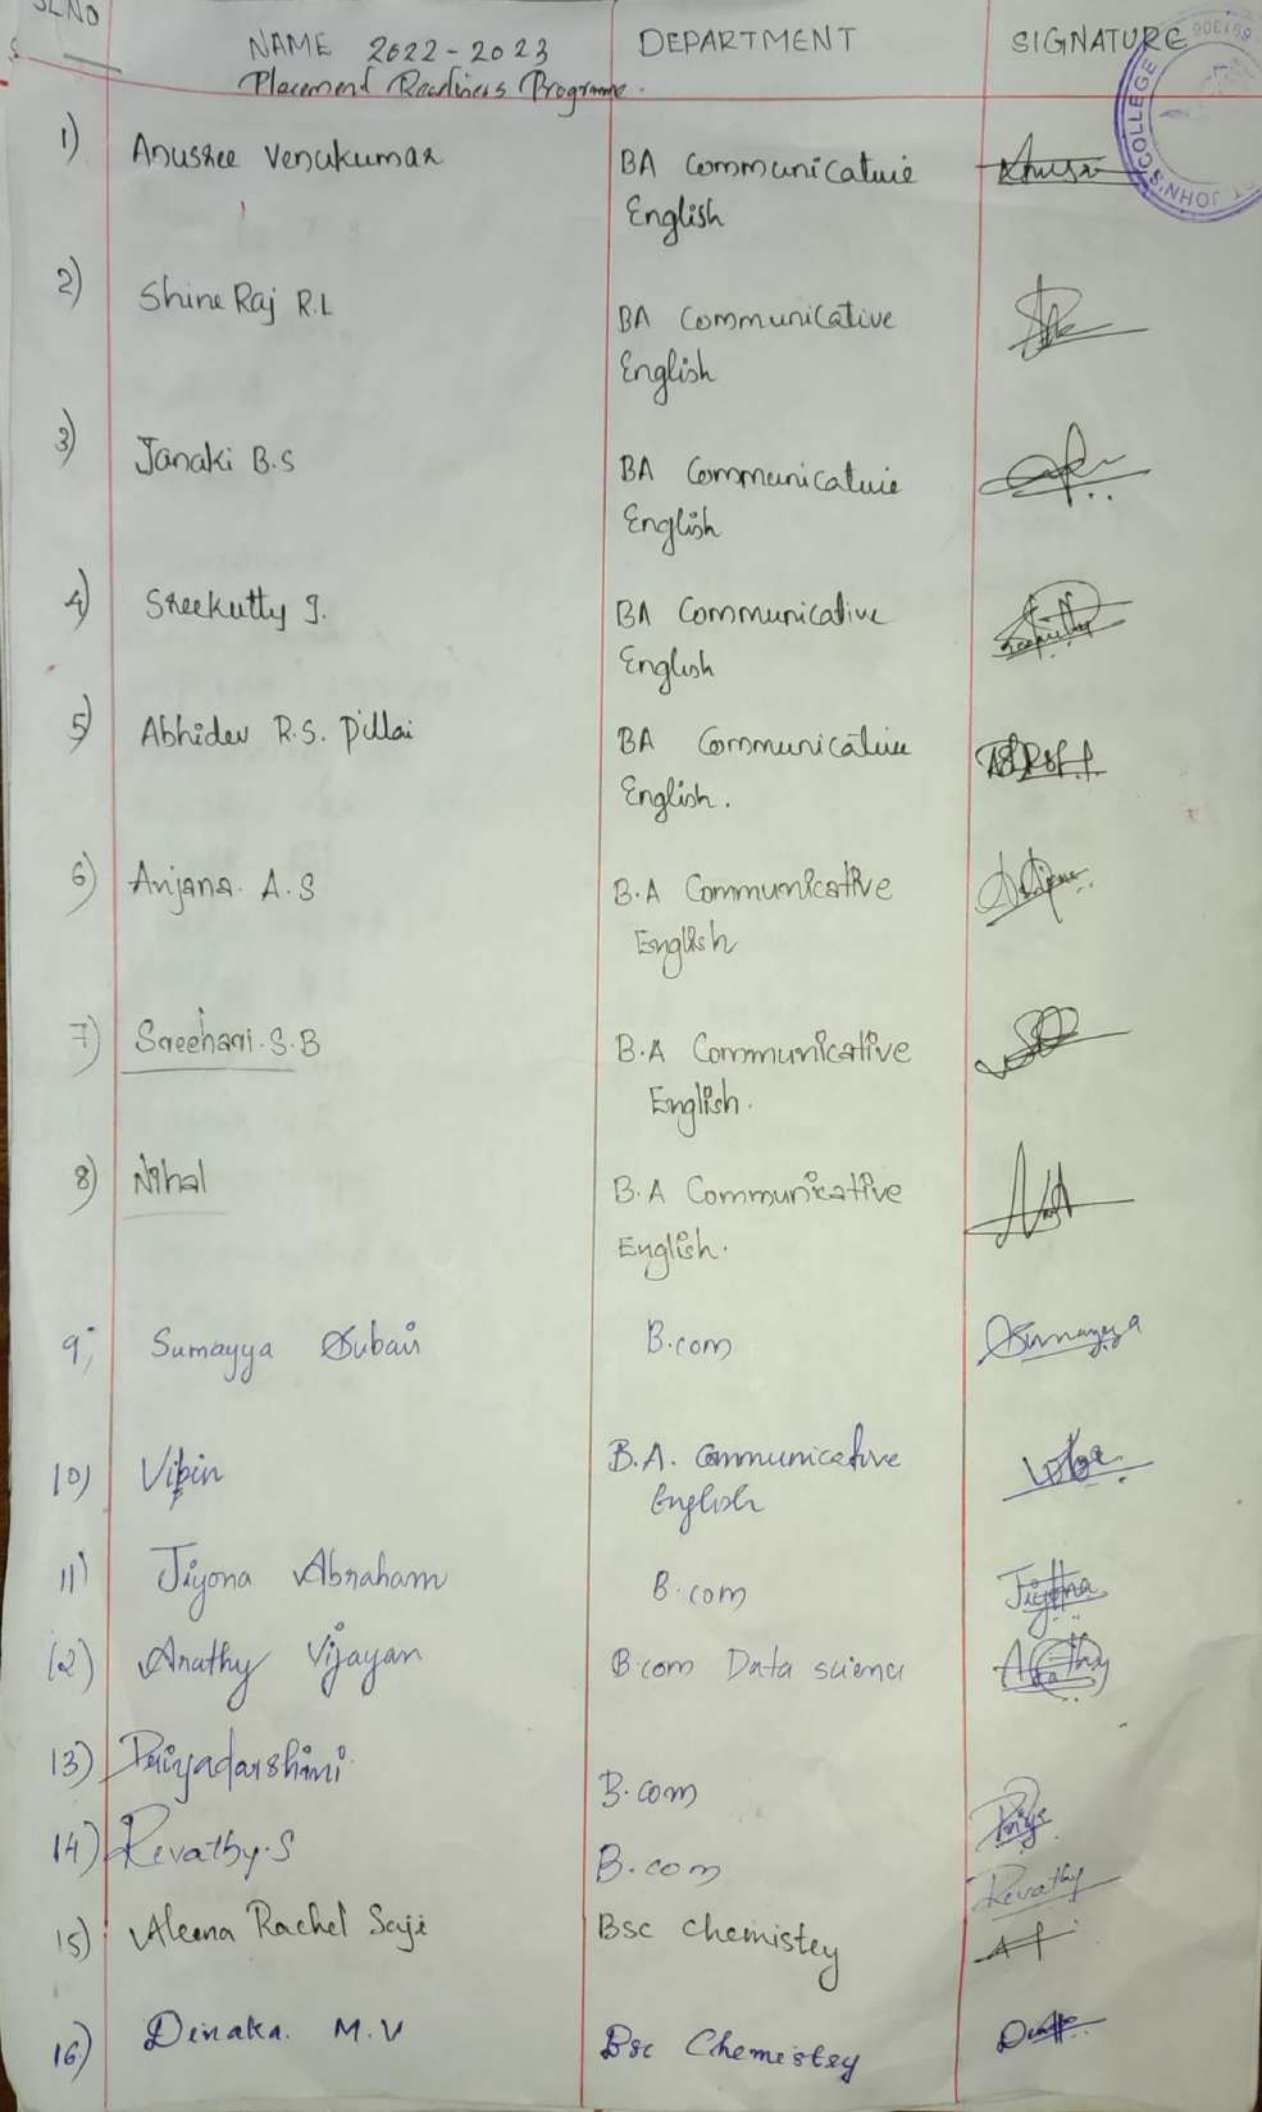 SL.NO NAME 2022-2023 DEPARTMENT SIGNATURE
Placement Readiness Programme.
ST. JOHN'S COLLEGE 691306
1) Anusree Venukumar BA Communicative
English
2) Shine Raj R.L BA Communicative
English
3) Janaki B.S BA Communicative
English
4) Sreekutty J. BA Communicative
English
5) Abhidev R.S. Pillai BA Communicative
English.
6) Anjana. A.S B.A Communicative
English
7) Sreehari. S.B B.A Communicative
English.
8) Nihal B.A Communicative
English.
9; Sumayya Subair B.com Sumayya
10) Vipin B.A. Communicative
English
11) Jiyona Abraham B.com Jiyona
12) Arathy Vijayan B.com Data scienc Arathy
13) Priyadarshini B.com Priya
14) Revathy.S B.com Revathy
15) Aleena Rachel Saji Bsc Chemistry
16) Devaka. M.V Bsc Chemistry